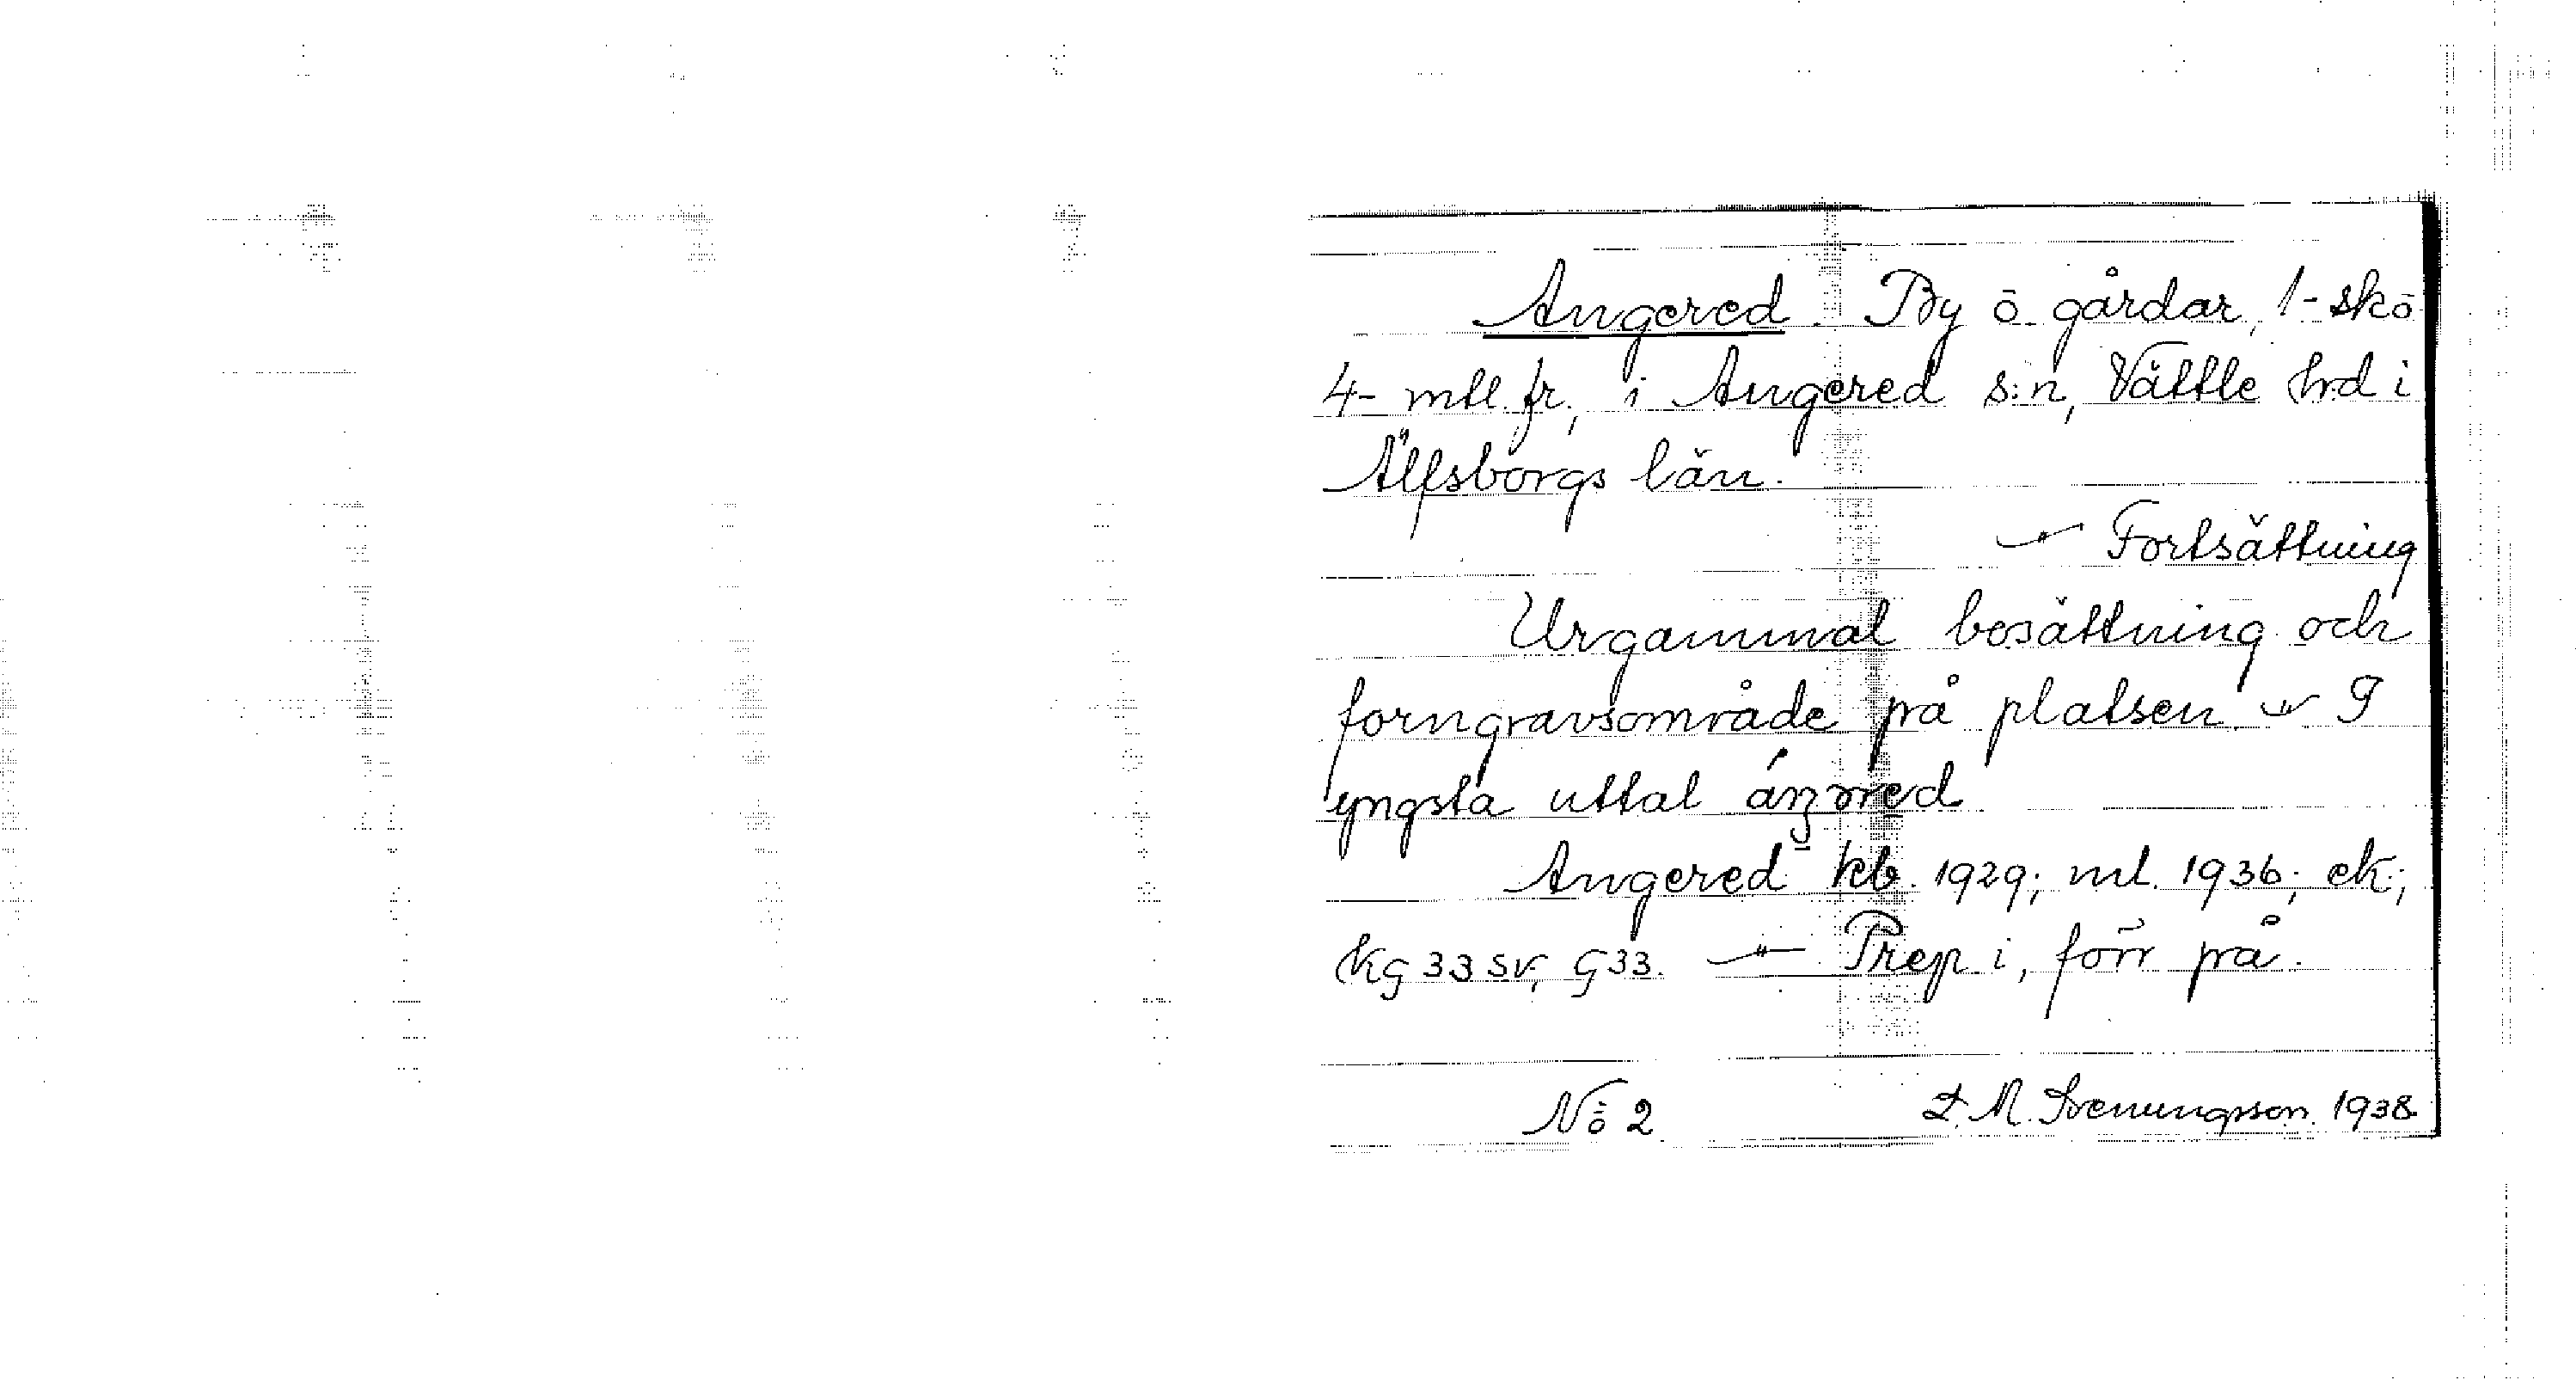 Angered. By o. gårdar, 1- sko
4- mtl. fr., i Angered s:n, Vättle hd i
Älfsborgs län.
Fortsättning
Urgammal besättning och
forngravsområde på platsen. I
yngsta uttal
Angered kb. 1929; ml. 1936; ek.;
Kg 33 sv, G33. — Prep. i, förr på.
No 2 L. M. Svenungsson. 1938